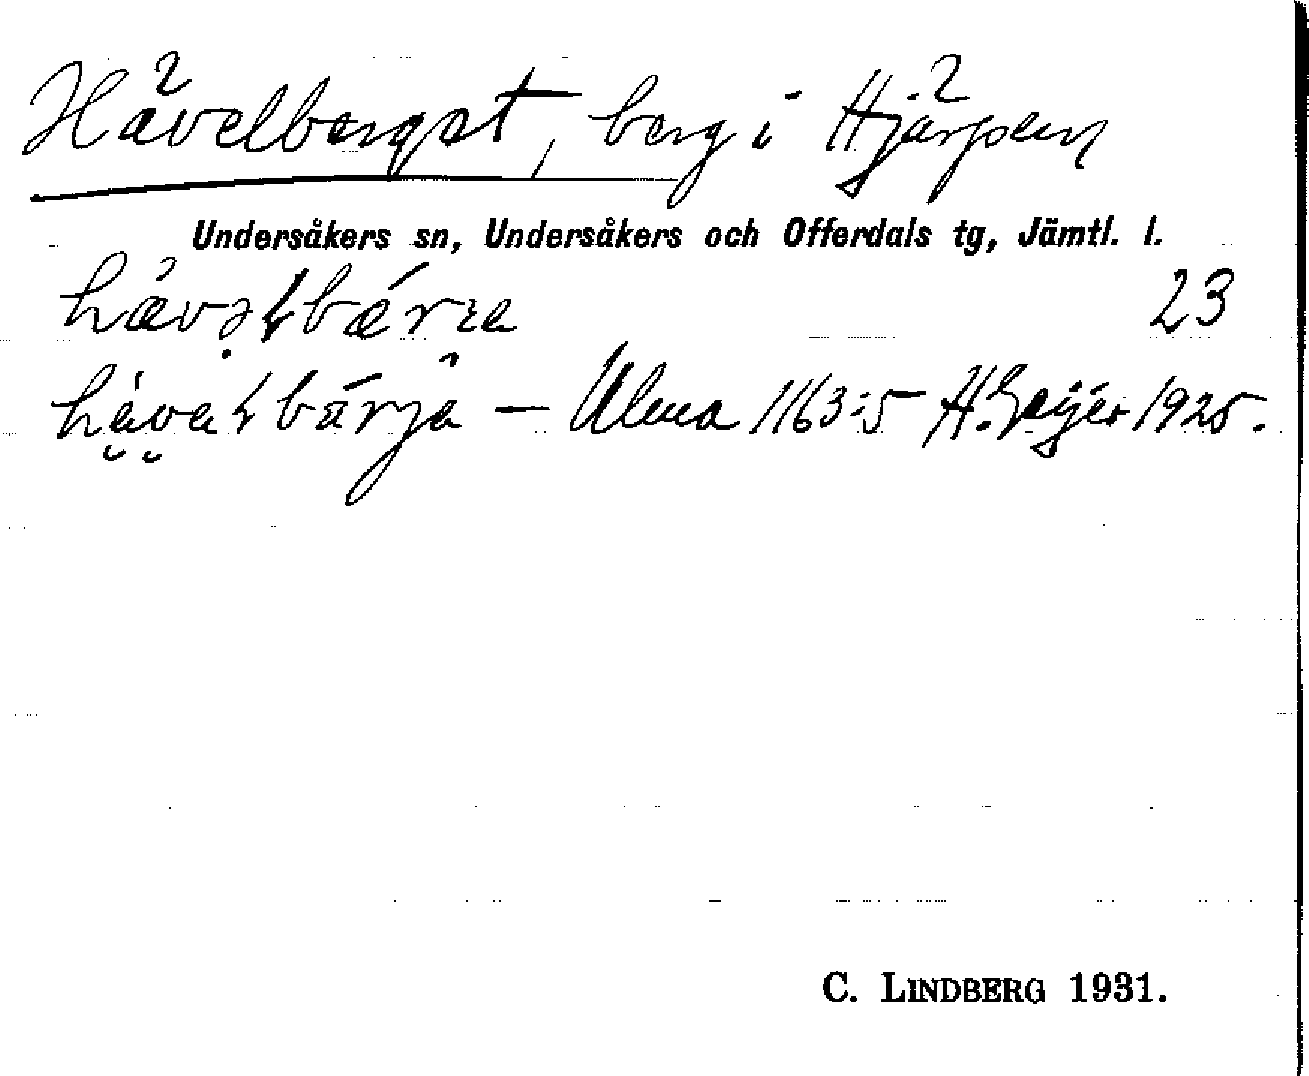 Hävelberget, berg i Hjärpen
Undersåkers sn, Undersåkers och Offerdals tg, Jämtl. l.
23
— Ulma 1163:5 H. Geijer 1925.
C. LINDBERG 1931.